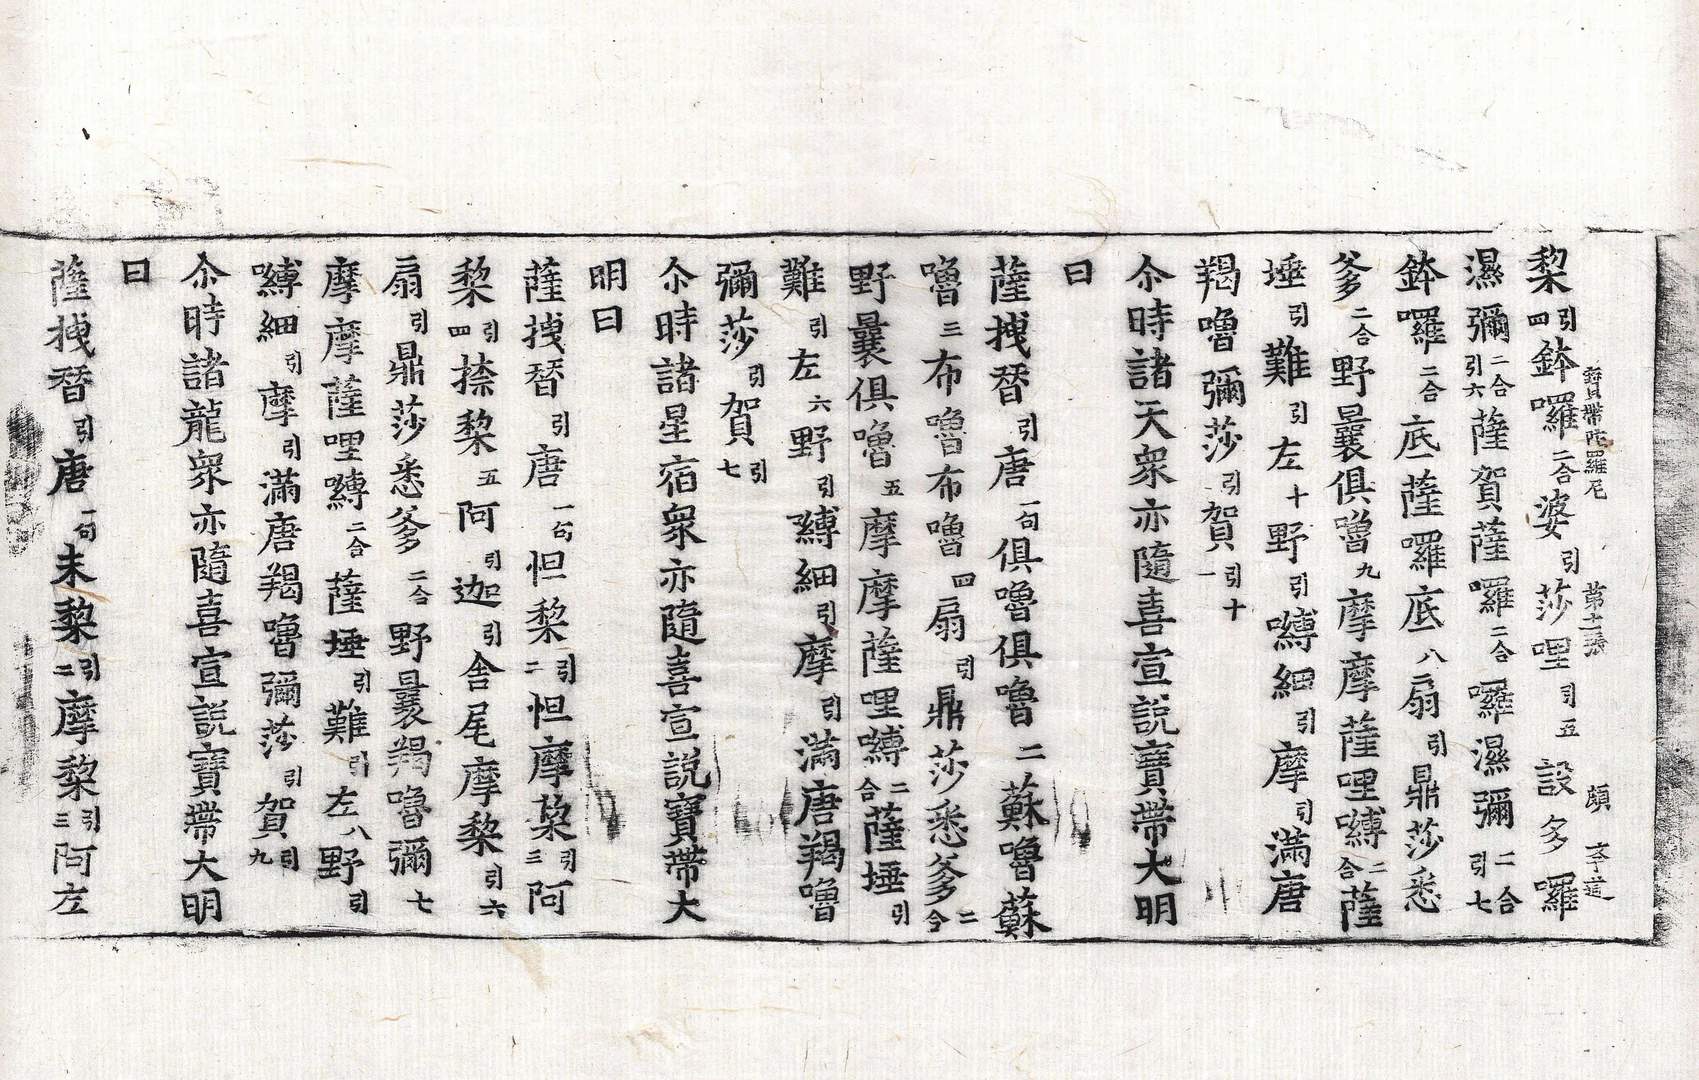 寶帶陀羅尼 第十二張 頗 李道
黎引四鉢囉二合婆引莎哩引五設多囉
濕彌二合引六薩賀薩囉二合囉濕彌二合引七
鉢囉二合底薩羅底八扇引鼎莎悉
爹二合野曩俱嚕九摩摩薩哩嚩二合薩
埵引難引左十野引嚩細引摩引滿唐
羯嚕彌莎引賀引十一
尒時諸天衆亦隨喜宣説寶帶大明
曰
薩拽替引唐一句俱嚕俱嚕二蘇嚕蘇
嚕三布嚕布嚕四扇引鼎莎悉爹二合
野曩俱嚕五摩摩薩哩嚩二合薩埵引
難引左六野引嚩細引摩引滿唐羯嚕
彌莎引賀引七
尒時諸星宿衆亦隨喜宣説寶帶大
明曰
薩拽替引唐一句怛黎引二怛摩黎引三阿
黎引四捺黎五阿引迦引舍尾摩黎引六
扇引鼎莎悉爹二合野曩羯嚕彌七
摩摩薩哩嚩二合薩埵引難引左八野引
嚩細引摩引滿唐羯嚕彌莎引賀引九
尒時諸龍衆亦隨喜宣説寶帶大明
曰
薩拽替引唐一句末黎引二摩黎引三阿左